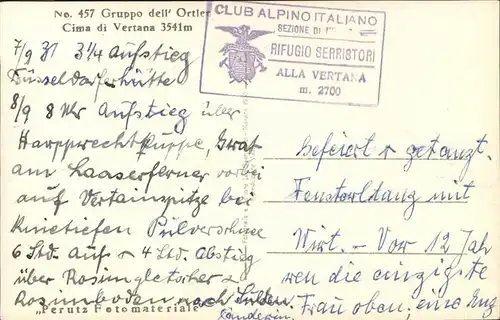 No. 457 Gruppo dell' Ortler
Cima di Vertana 3541m
CLUB ALPINO ITALIANO
SEZIONE DI
RIFUGIO SERRISTORI
ALLA VERTANA
m. 2700
7/9 31 3¼ Aufstieg
Düsseldorferhütte
8/9 8 Uhr Aufstieg über
Harpprechtkuppe, Grat
am Laaserferner vorbei
auf Vertainspitze bei
knietiefen Pulverschnee
6 Std. auf u 4 Std. Abstieg
über Rosimgletscher u
Rosimboden nach Sulden.
„Perutz Fotomateriale"
Gefeiert u getanzt.
Fensterltanz mit
Wirt. - Vor 12 Jah
ren die einzigste
Frau oben, eine Eng
länderin.